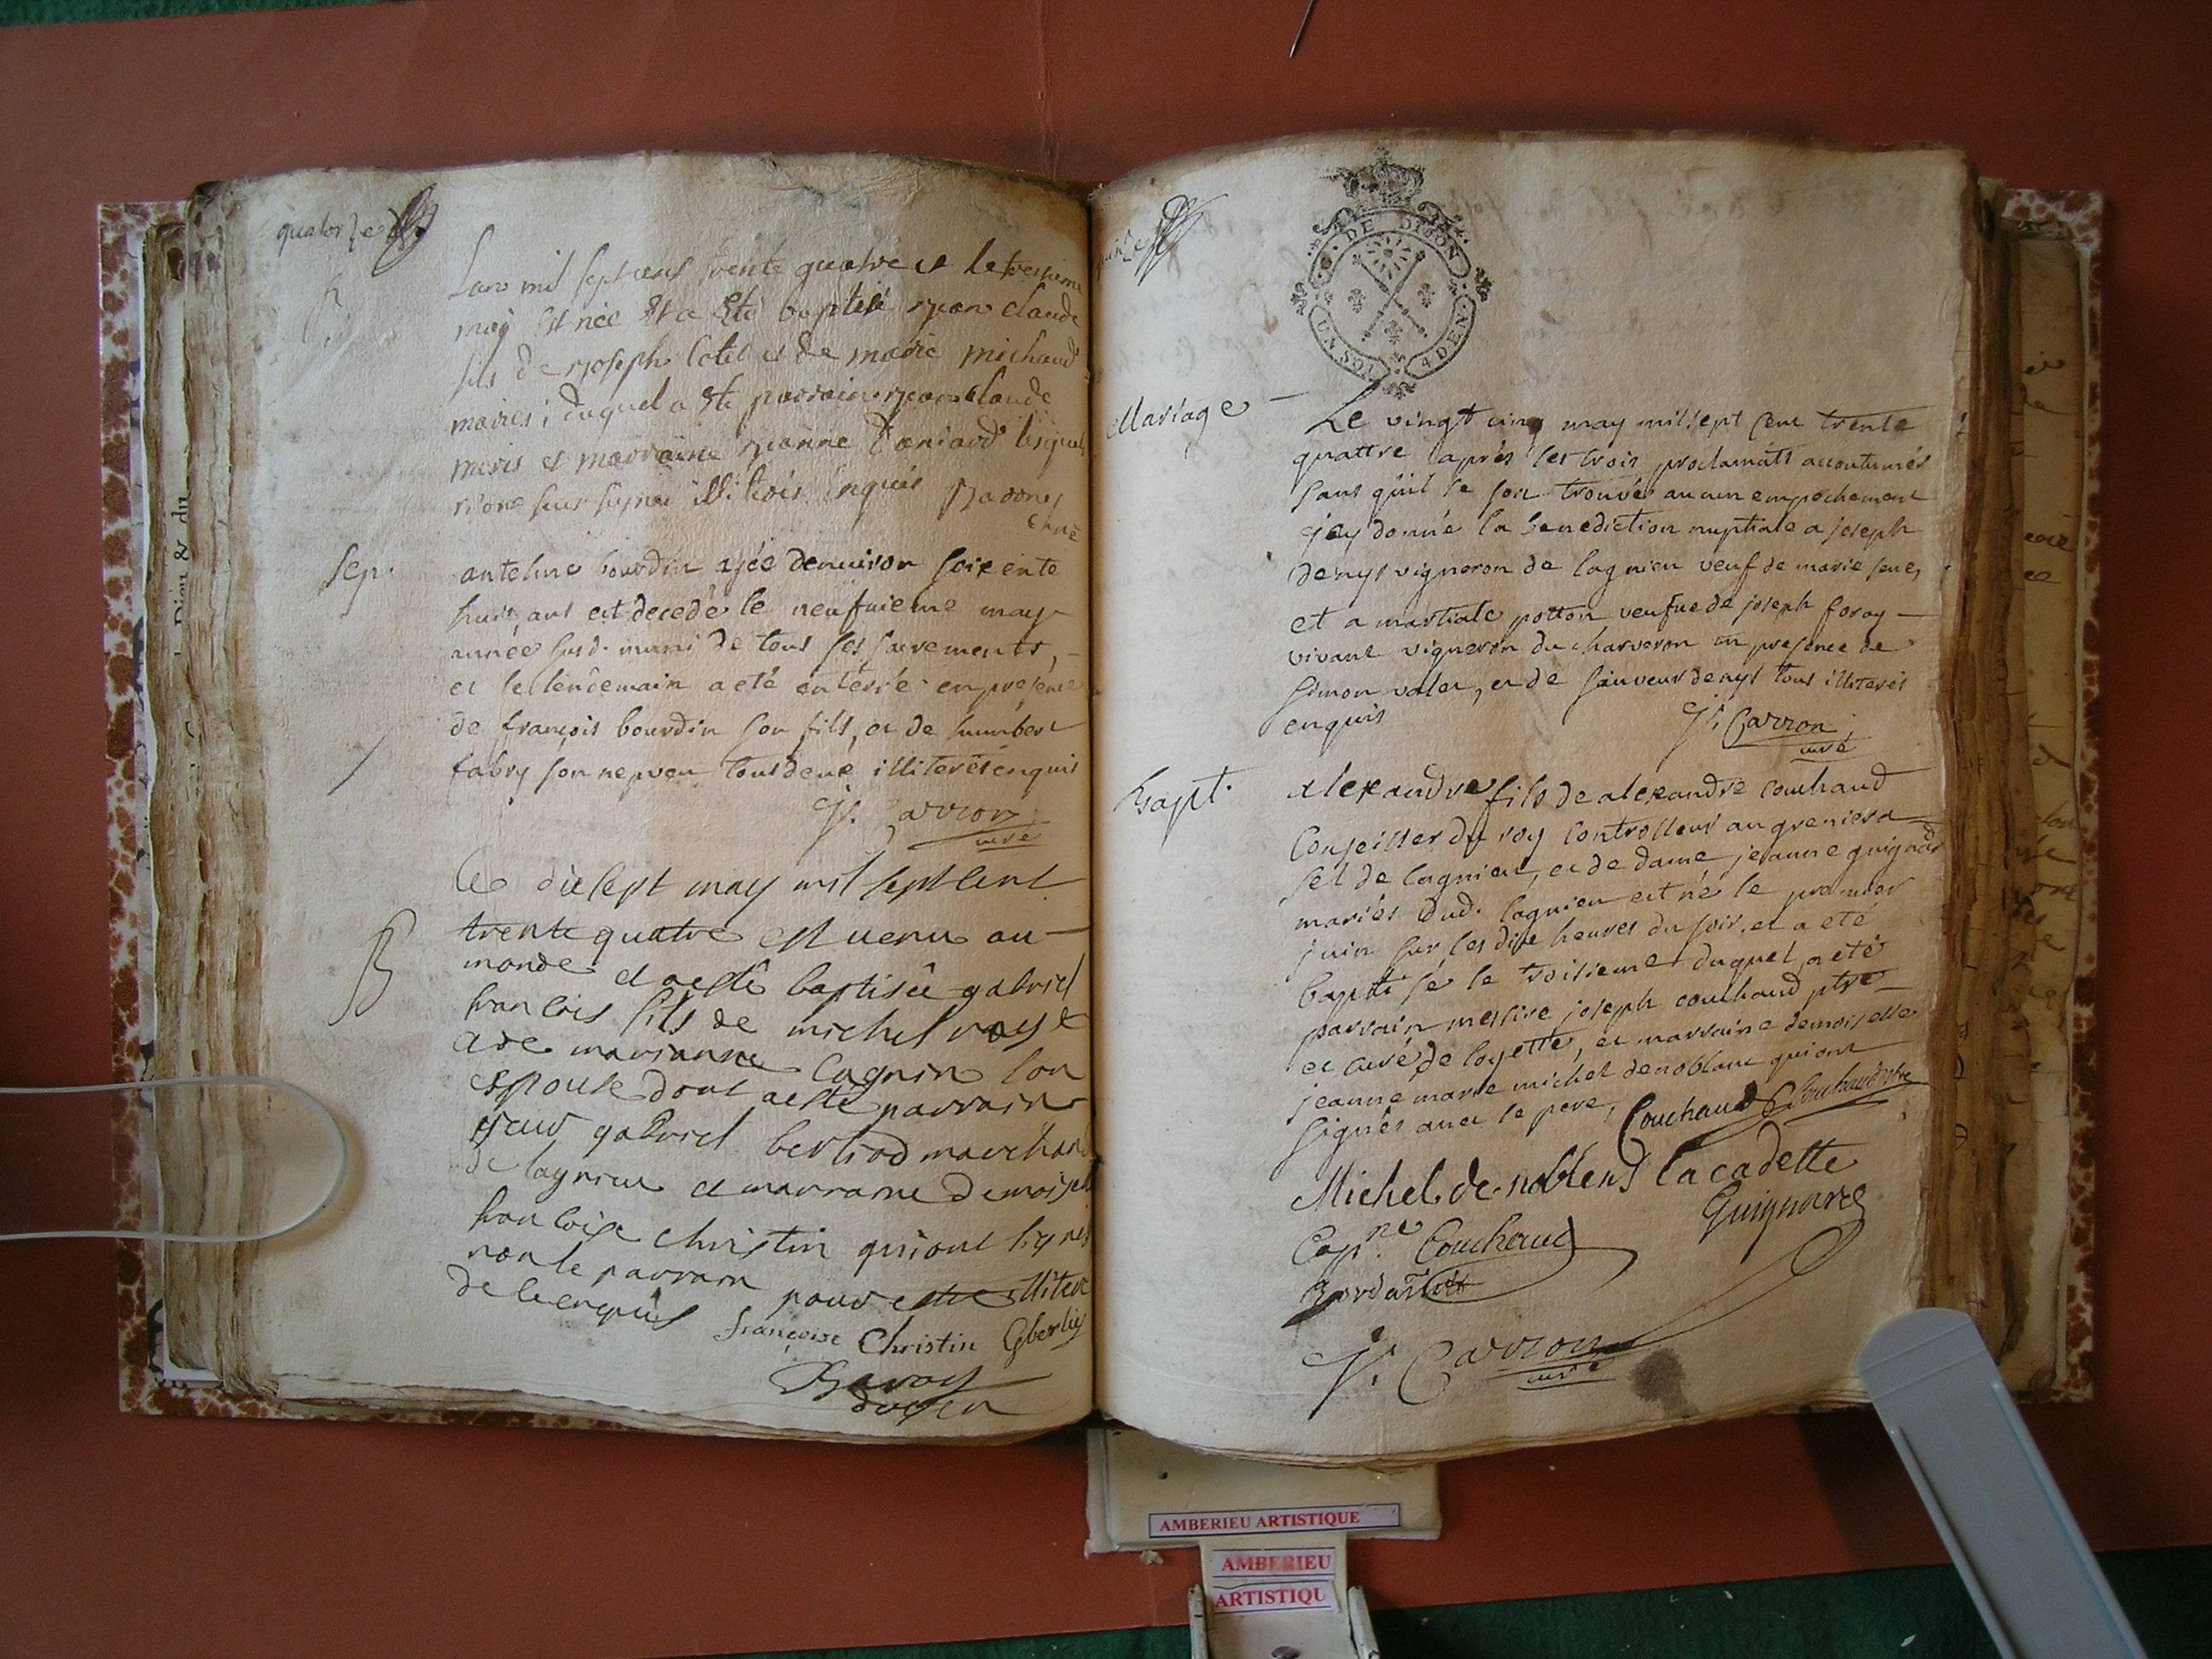 quatorze
Lan mil sept cens trente quatre et le troisieme
may est née et a esté baptisé jean claude
fils de joseph cotel et de marie michaud
mariés; duquel a esté parrain jean claude
et marraine jeanne lesquels
illiterés enquis
curé
Sep. antelme bourdin agée denviron soixente
huit ans est decedé le neufuieme may
année susd. muni de tous ses sacrements,
et le lendemain a eté enterré en presence
de françois bourdin son fils, et de humbert
fabry son nepveu tous deux illiterés enquis
J. Carron
curé
Le diesept may mil sept cent
B trente quatre est venu au
monde et a esté baptisée gabriel
francois fils de michel
et de marianne cagnin son
espouse dont a esté parrain
sieur gabriel bertrod marchand
de lagnieu et marraine demoiselle
francoise christin qui ont signés
non le parrain pour estre illiteré
de ce enquis françoise Christin
quinze
DE DIJON
UN SOL 4 DEN.
Mariage Le vingt cinq may mil sept cent trente
quattre après les trois proclamats accoutumés
sans qu'il se soit trouvé aucun empechement
j'ay donné la benediction nuptiale a joseph
denys vigneron de lagnieu veuf de marie
et a martiale potton veufue de joseph foray
vivant vigneron du charveron en presence de
simon valer, et de sauveur denys tous illiterés
enquis J. Carron
curé
Bapt. Alexandre fils de alexandre couchaud
Conseiller du roy controlleur au grenier a
sel de lagnieu, et de dame jeanne guignard
mariés dud. lagnieu est né le premier
juin sur les dixe heures du soir, et a eté
baptisé le troisieme duquel a eté
parrain messire joseph couchaud ptre
et curé de loyette, et marraine demoiselle
jeanne marie michel denoblanc qui ont
signés avec le pere, Couchaud Couchaud ptre
Michel de noblens lacadette
Guignard
Couchaud
J. Carron
curé
AMBERIEU ARTISTIQUE
AMBERIEU
ARTISTIQU